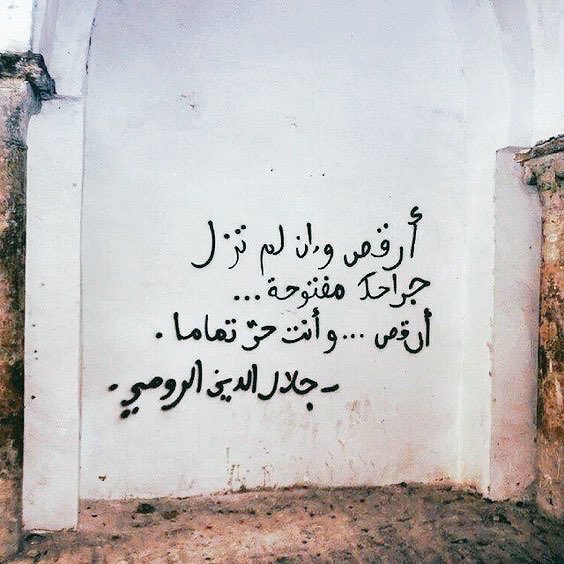 أرقص وإن لم تزل
جراحك مفتوحة ...
أرقص ... وأنت حرّ تماما .
- جلال الدين الرومي .